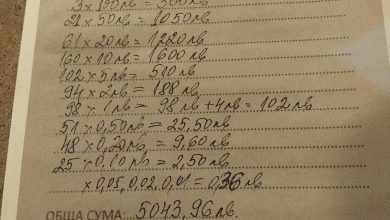 3 x 100лв = 300лв
21 x 50лв = 1050лв
61 x 20лв = 1220лв
160 x 10лв = 1600лв
102 x 5лв = 510лв
94 x 2лв = 188лв
98 x 1лв = 98лв + 4лв = 102лв
51 x 0,50лв = 25,50лв
48 x 0,20лв = 9,60лв
25 x 0,10лв = 2,50лв
x 0,05, 0,02, 0,01 = 0,36лв
ОБЩА СУМА: 5043,96лв.